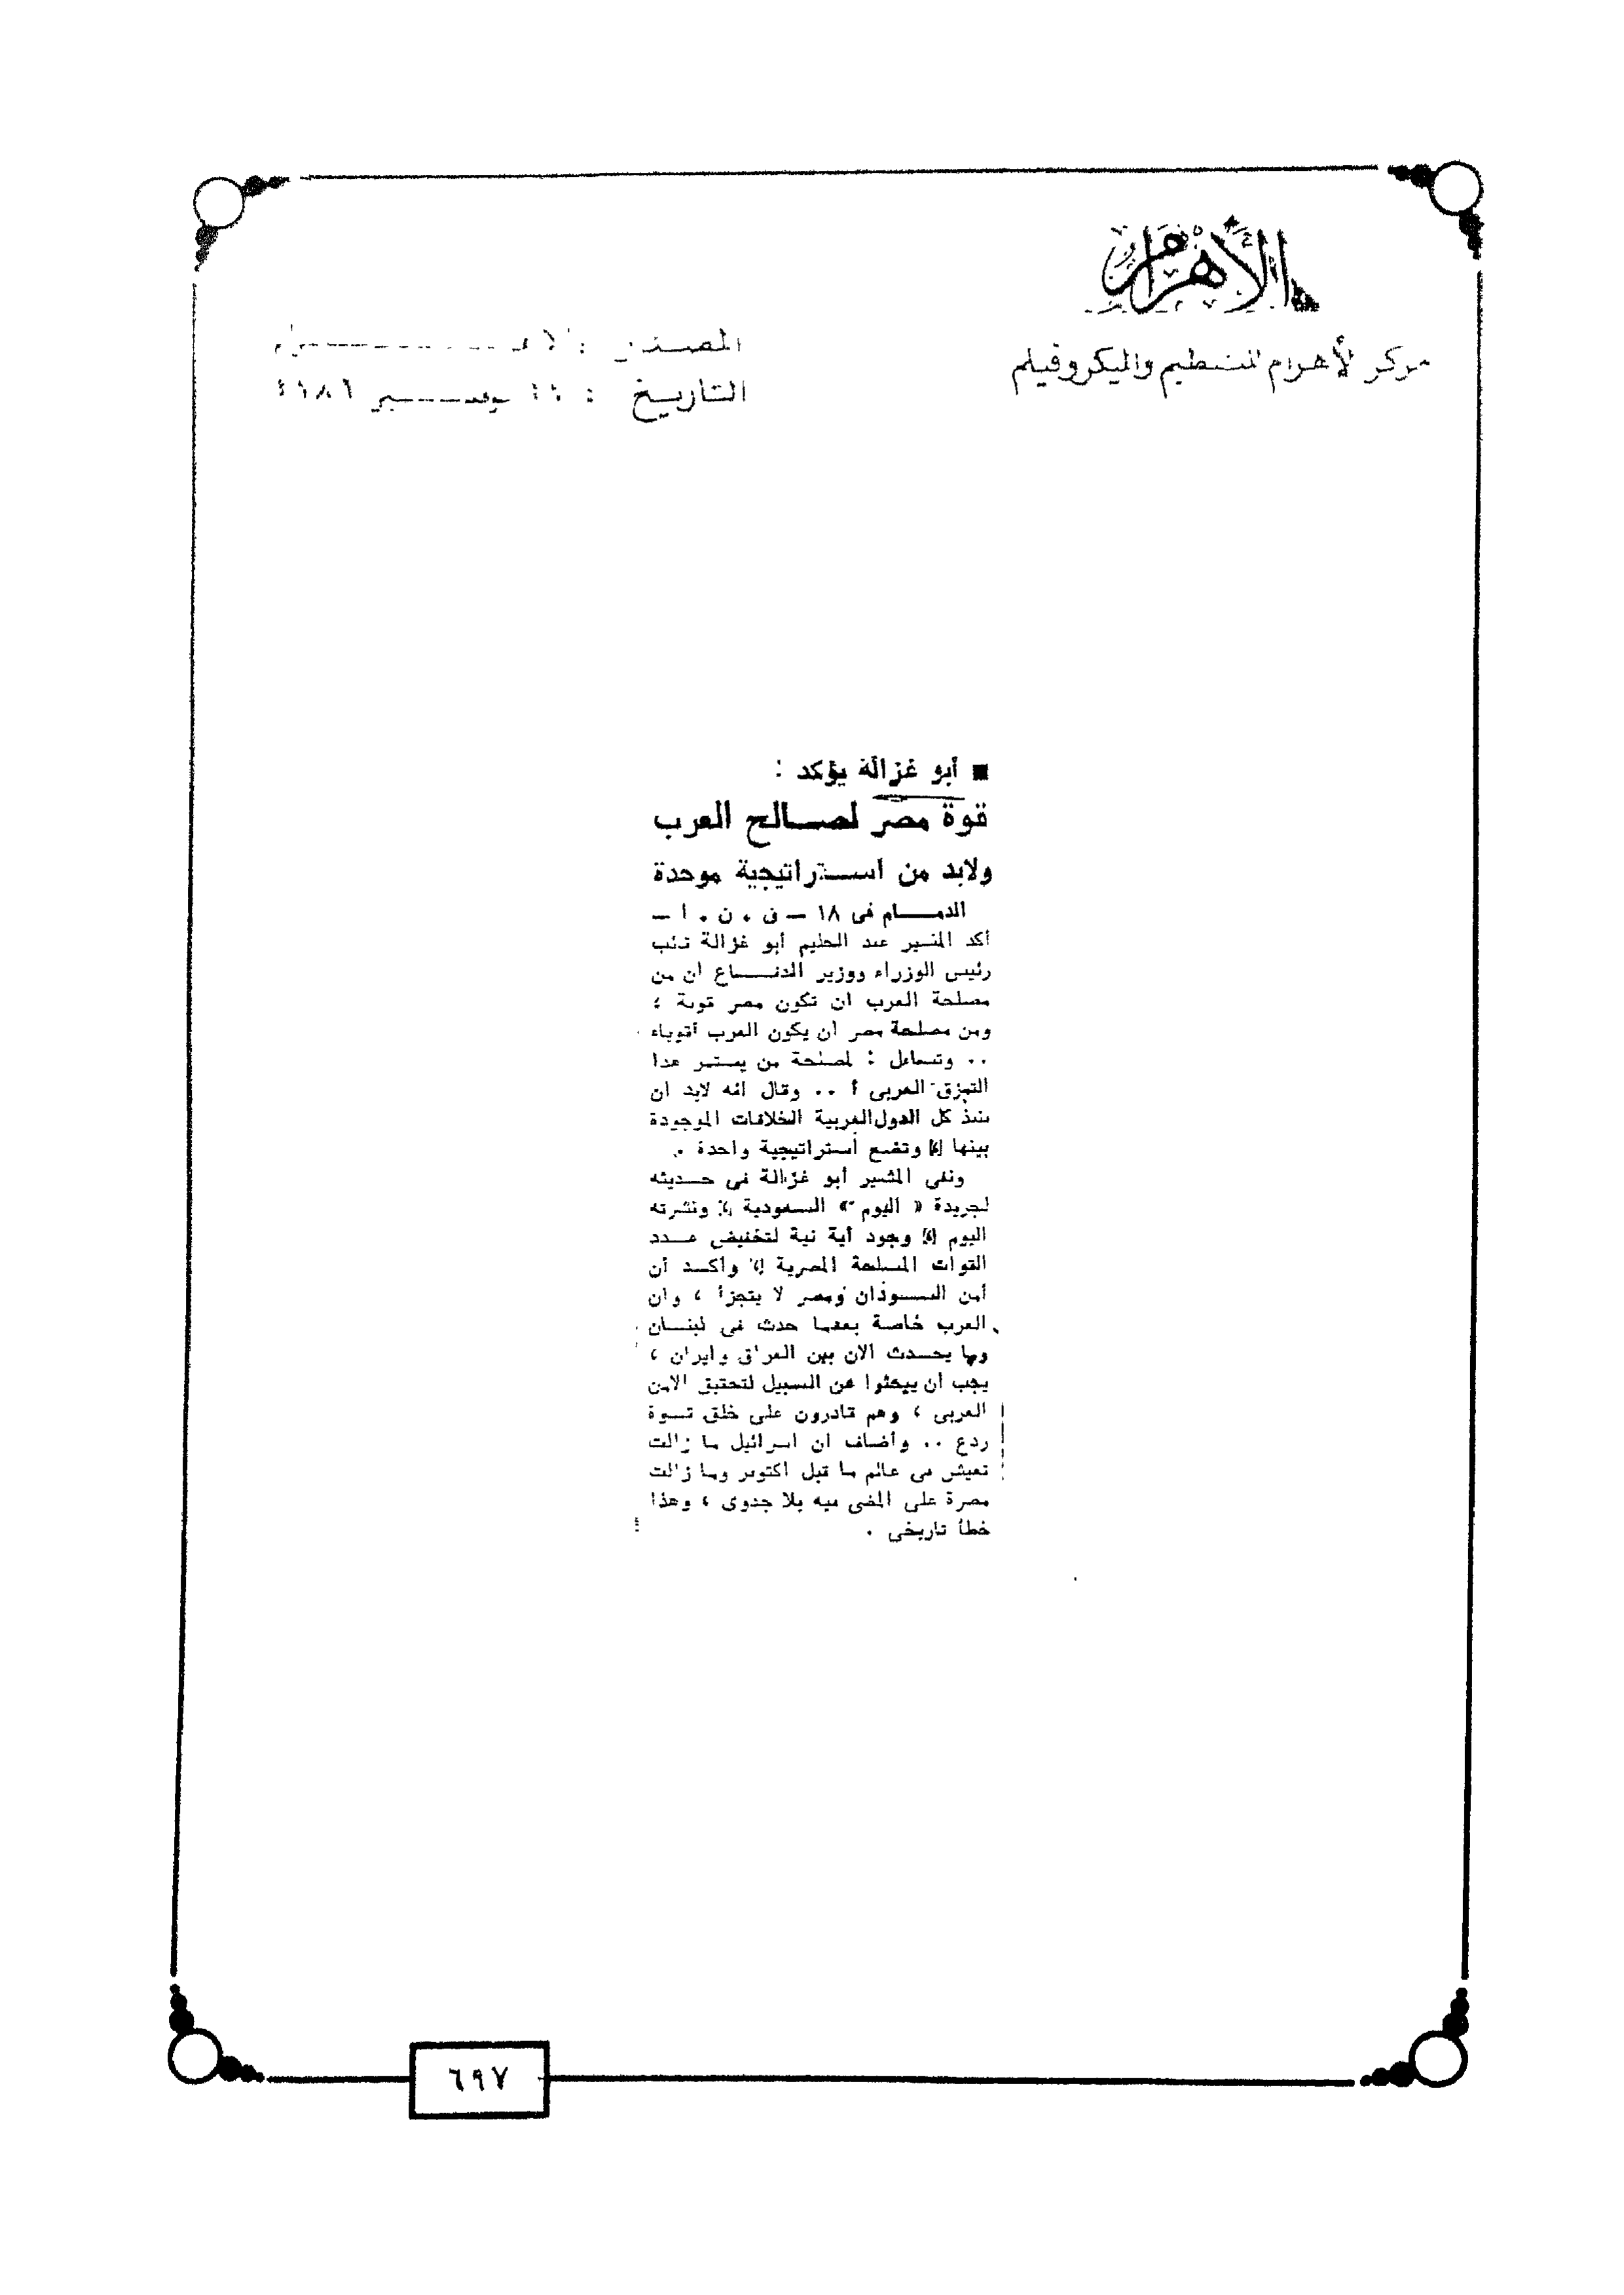 الأهرام
مركز الأهرام للتنظيم والميكروفيلم
المصدر :
التاريخ :
■ أبو غزالة يؤكد :
قوة مصر لصالح العرب
ولابد من استراتيجية موحدة
الدمام فى ١٨ – ق . ن . ا –
أكد المشير عبد الحليم أبو غزالة نائب
رئيس الوزراء ووزير الدفاع ان من
مصلحة العرب ان تكون مصر قوية ؛
ومن مصلحة مصر أن يكون العرب أقوياء
.. وتساءل : لمصلحة من يستمر هذا
التمزق العربى ؟ .. وقال انه لابد ان
تنبذ كل الدول العربية الخلافات الموجودة
بينها ، وتضع أستراتيجية واحدة .
ونفى المشير أبو غزالة فى حديثه
لجريدة « اليوم » السعودية ، ونشرته
اليوم ، وجود أية نية لتخفيض عدد
القوات المسلحة المصرية ، وأكد أن
أمن السودان ومصر لا يتجزأ ، وان
العرب خاصة بعدما حدث فى لبنان
وما يحدث الآن بين العراق وايران ،
يجب أن يبحثوا عن السبيل لتحقيق الامن
العربى ، وهم قادرون على خلق قوة
ردع .. وأضاف ان اسرائيل ما زالت
تعيش فى عالم ما قبل اكتوبر وما زالت
مصرة على المضى فيه بلا جدوى ، وهذا
خطأ تاريخى .
٦٩٧